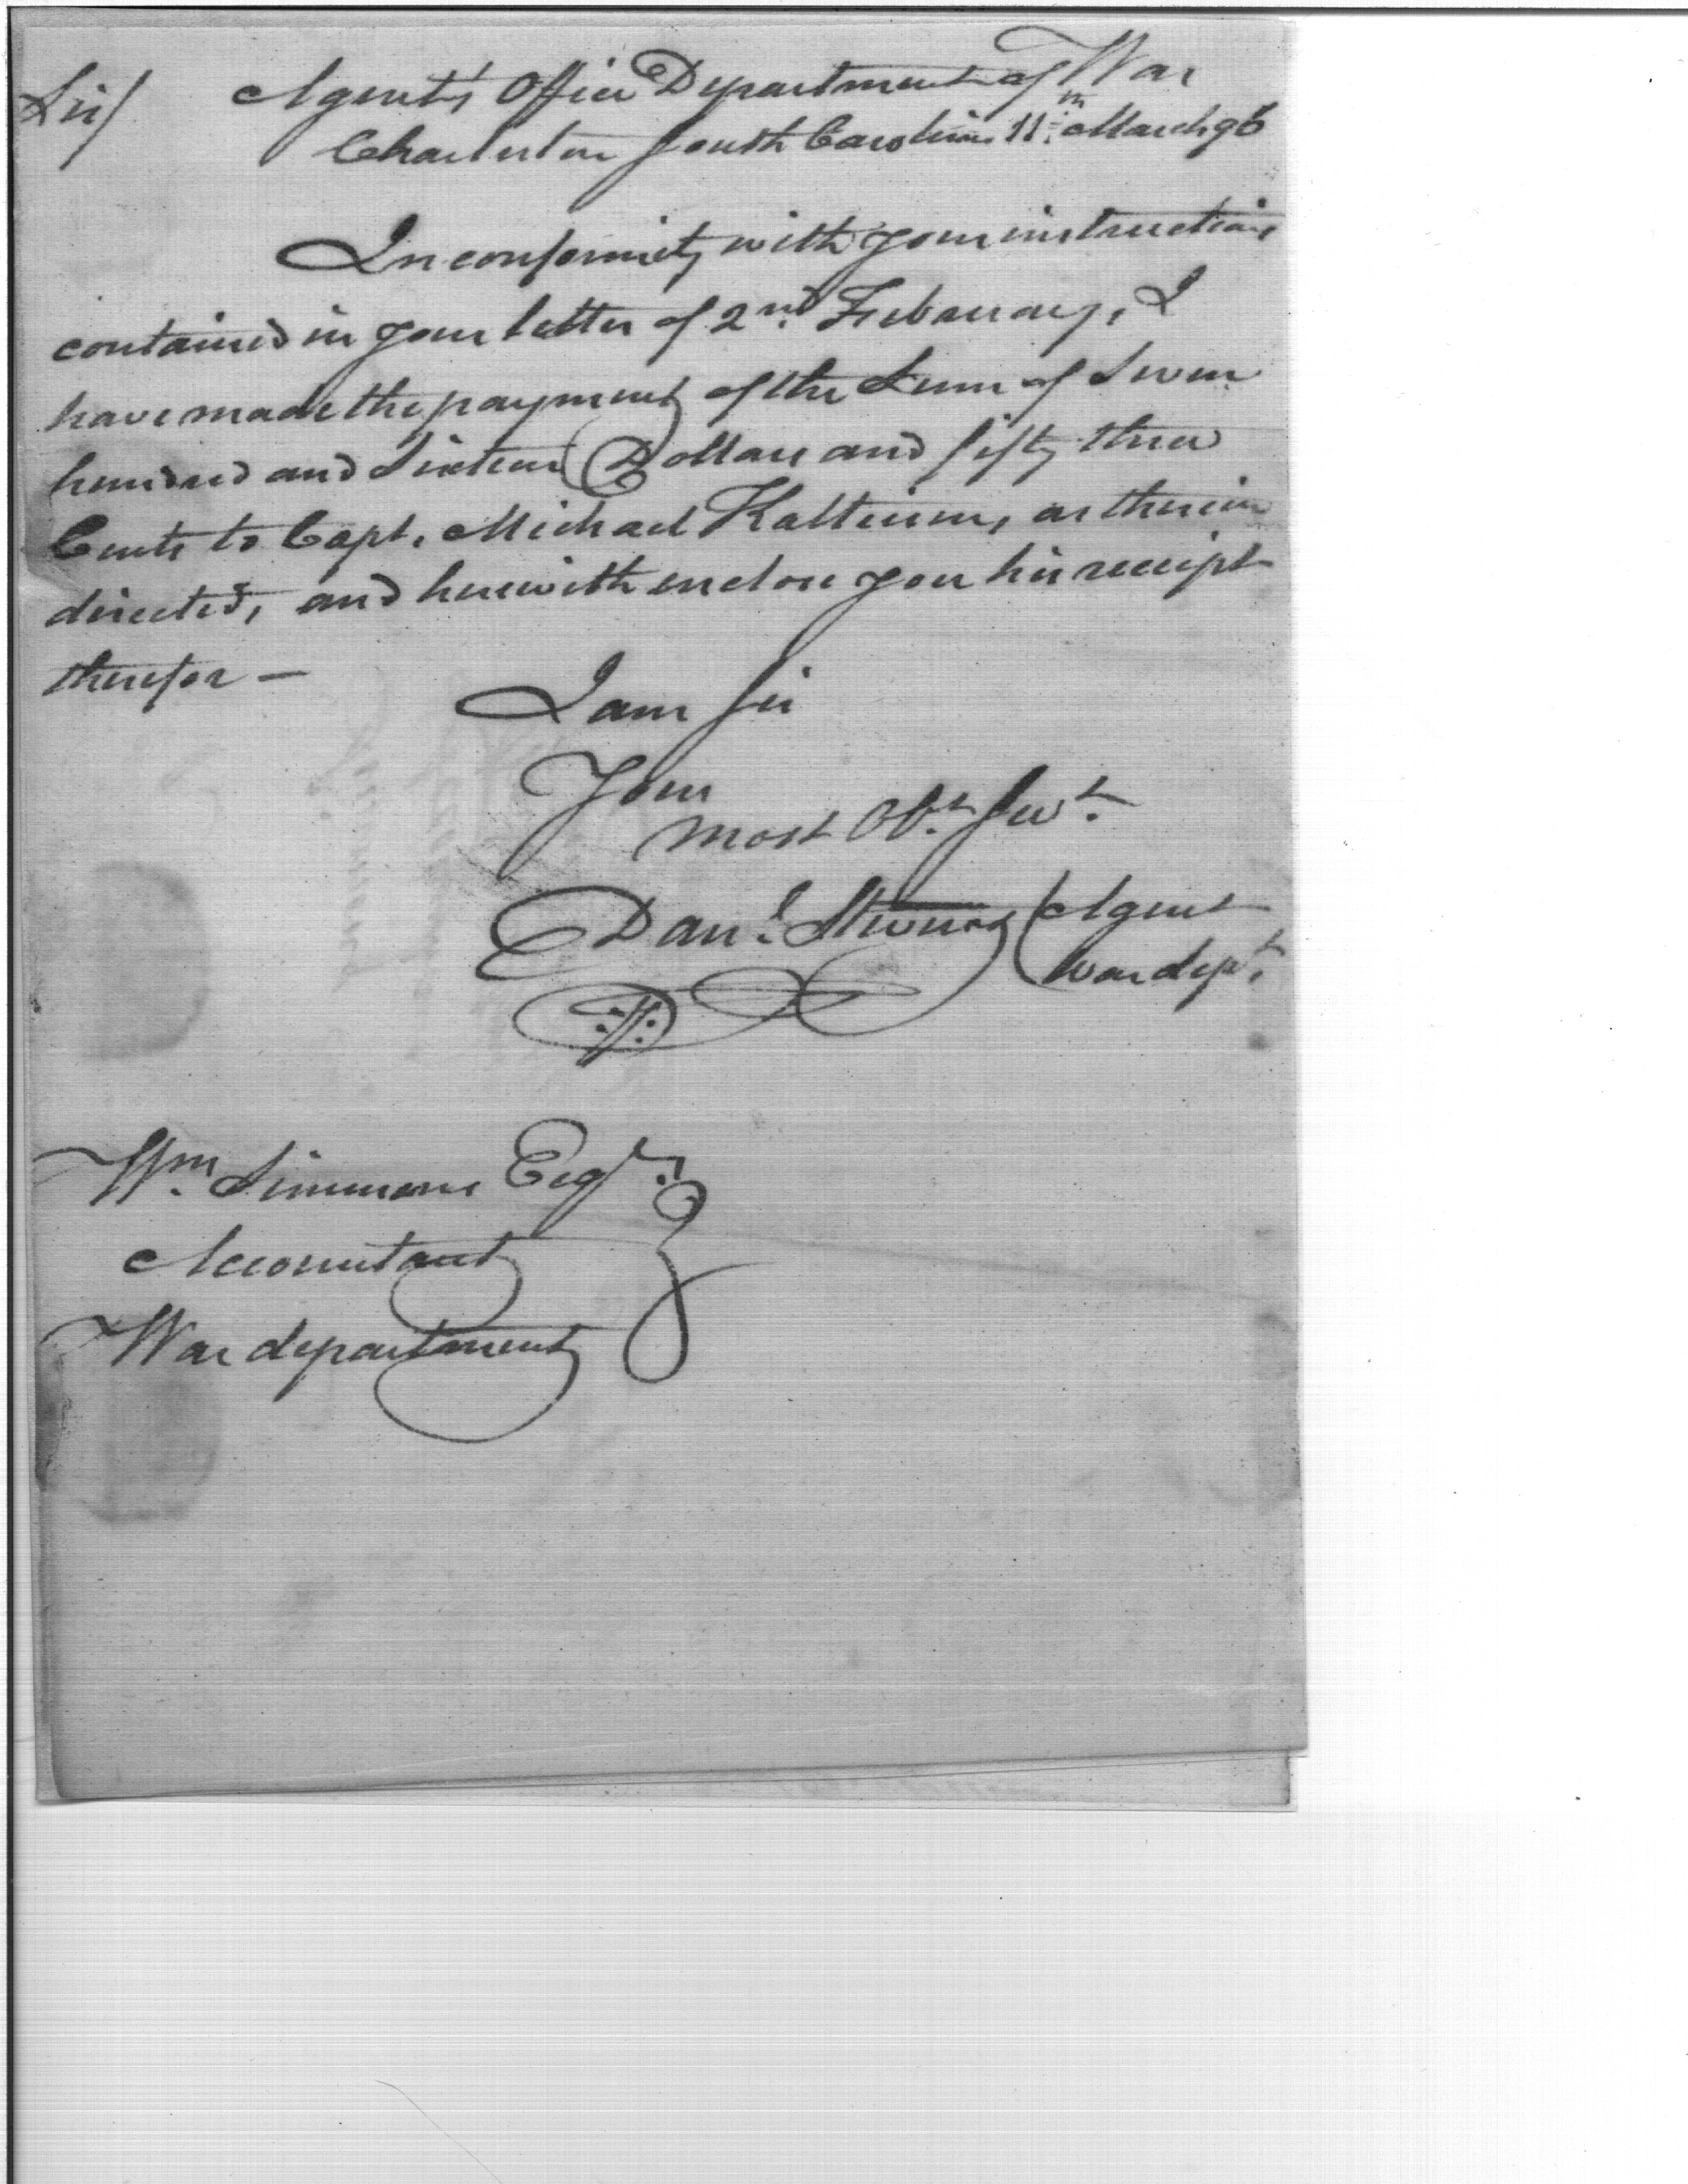 Sir/ Agent's Office Department of War
Charleston South Carolina 11.th March 96
In conformity with your instructions
contained in your letter of 2nd. February, I
have made the payment of the Sum of Seven
hundred and Sixteen Dollars and fifty three
Cents to Capt. Michael Kalteisen, as therein
directed, and herewith enclose you his receipt
therefor —
I am Sir
Your
most Obt. Servt.
Danl. Stevens Agent
War dept.
Wm. Simmons Esqr.
Accountant
War department